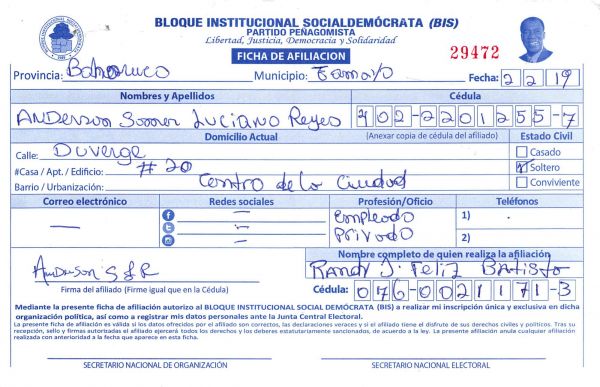 BLOQUE INSTITUCIONAL SOCIALDEMÓCRATA (BIS)
PARTIDO PEÑAGOMISTA
Libertad, Justicia, Democracia y Solidaridad
FICHA DE AFILIACION
29472
Provincia: Bahoruco Municipio: Tamayo Fecha: 2 2 19
Nombres y Apellidos Cédula
Anderson Luciano Reyes 402-2201255-7
Domicilio Actual (Anexar copia de cédula del afiliado) Estado Civil
Calle: Duverge Casado
#Casa / Apt. / Edificio: # 20 Soltero
Barrio / Urbanización: Centro de la Ciudad Conviviente
Correo electrónico Redes sociales Profesión/Oficio Teléfonos
— — Empleado 1)
— Privado 2)
—
Nombre completo de quien realiza la afiliación
Anderson S L R Randy J. Feliz Batista
Firma del afiliado (Firme igual que en la Cédula) Cédula: 076-0021171-3
Mediante la presente ficha de afiliación autorizo al BLOQUE INSTITUCIONAL SOCIAL DEMÓCRATA (BIS) a realizar mi inscripción única y exclusiva en dicha
organización política, así como a registrar mis datos personales ante la Junta Central Electoral.
La presente ficha de afiliación es válida si los datos ofrecidos por el afiliado son correctos, las declaraciones veraces y si el afiliado tiene el disfrute de sus derechos civiles y políticos. Tras su
recepción, sello y firmas autorizadas el afiliado ejercerá todos los derechos y los deberes estatutariamente sancionados, de acuerdo a la ley. La presente afiliación anula cualquier afiliación
realizada con anterioridad a la fecha que aparece en esta ficha.
SECRETARIO NACIONAL DE ORGANIZACIÓN SECRETARIO NACIONAL ELECTORAL